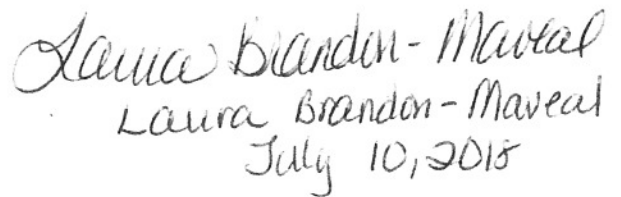 Laura Brandon-Maveal
Laura Brandon-Maveal
July 10, 2018